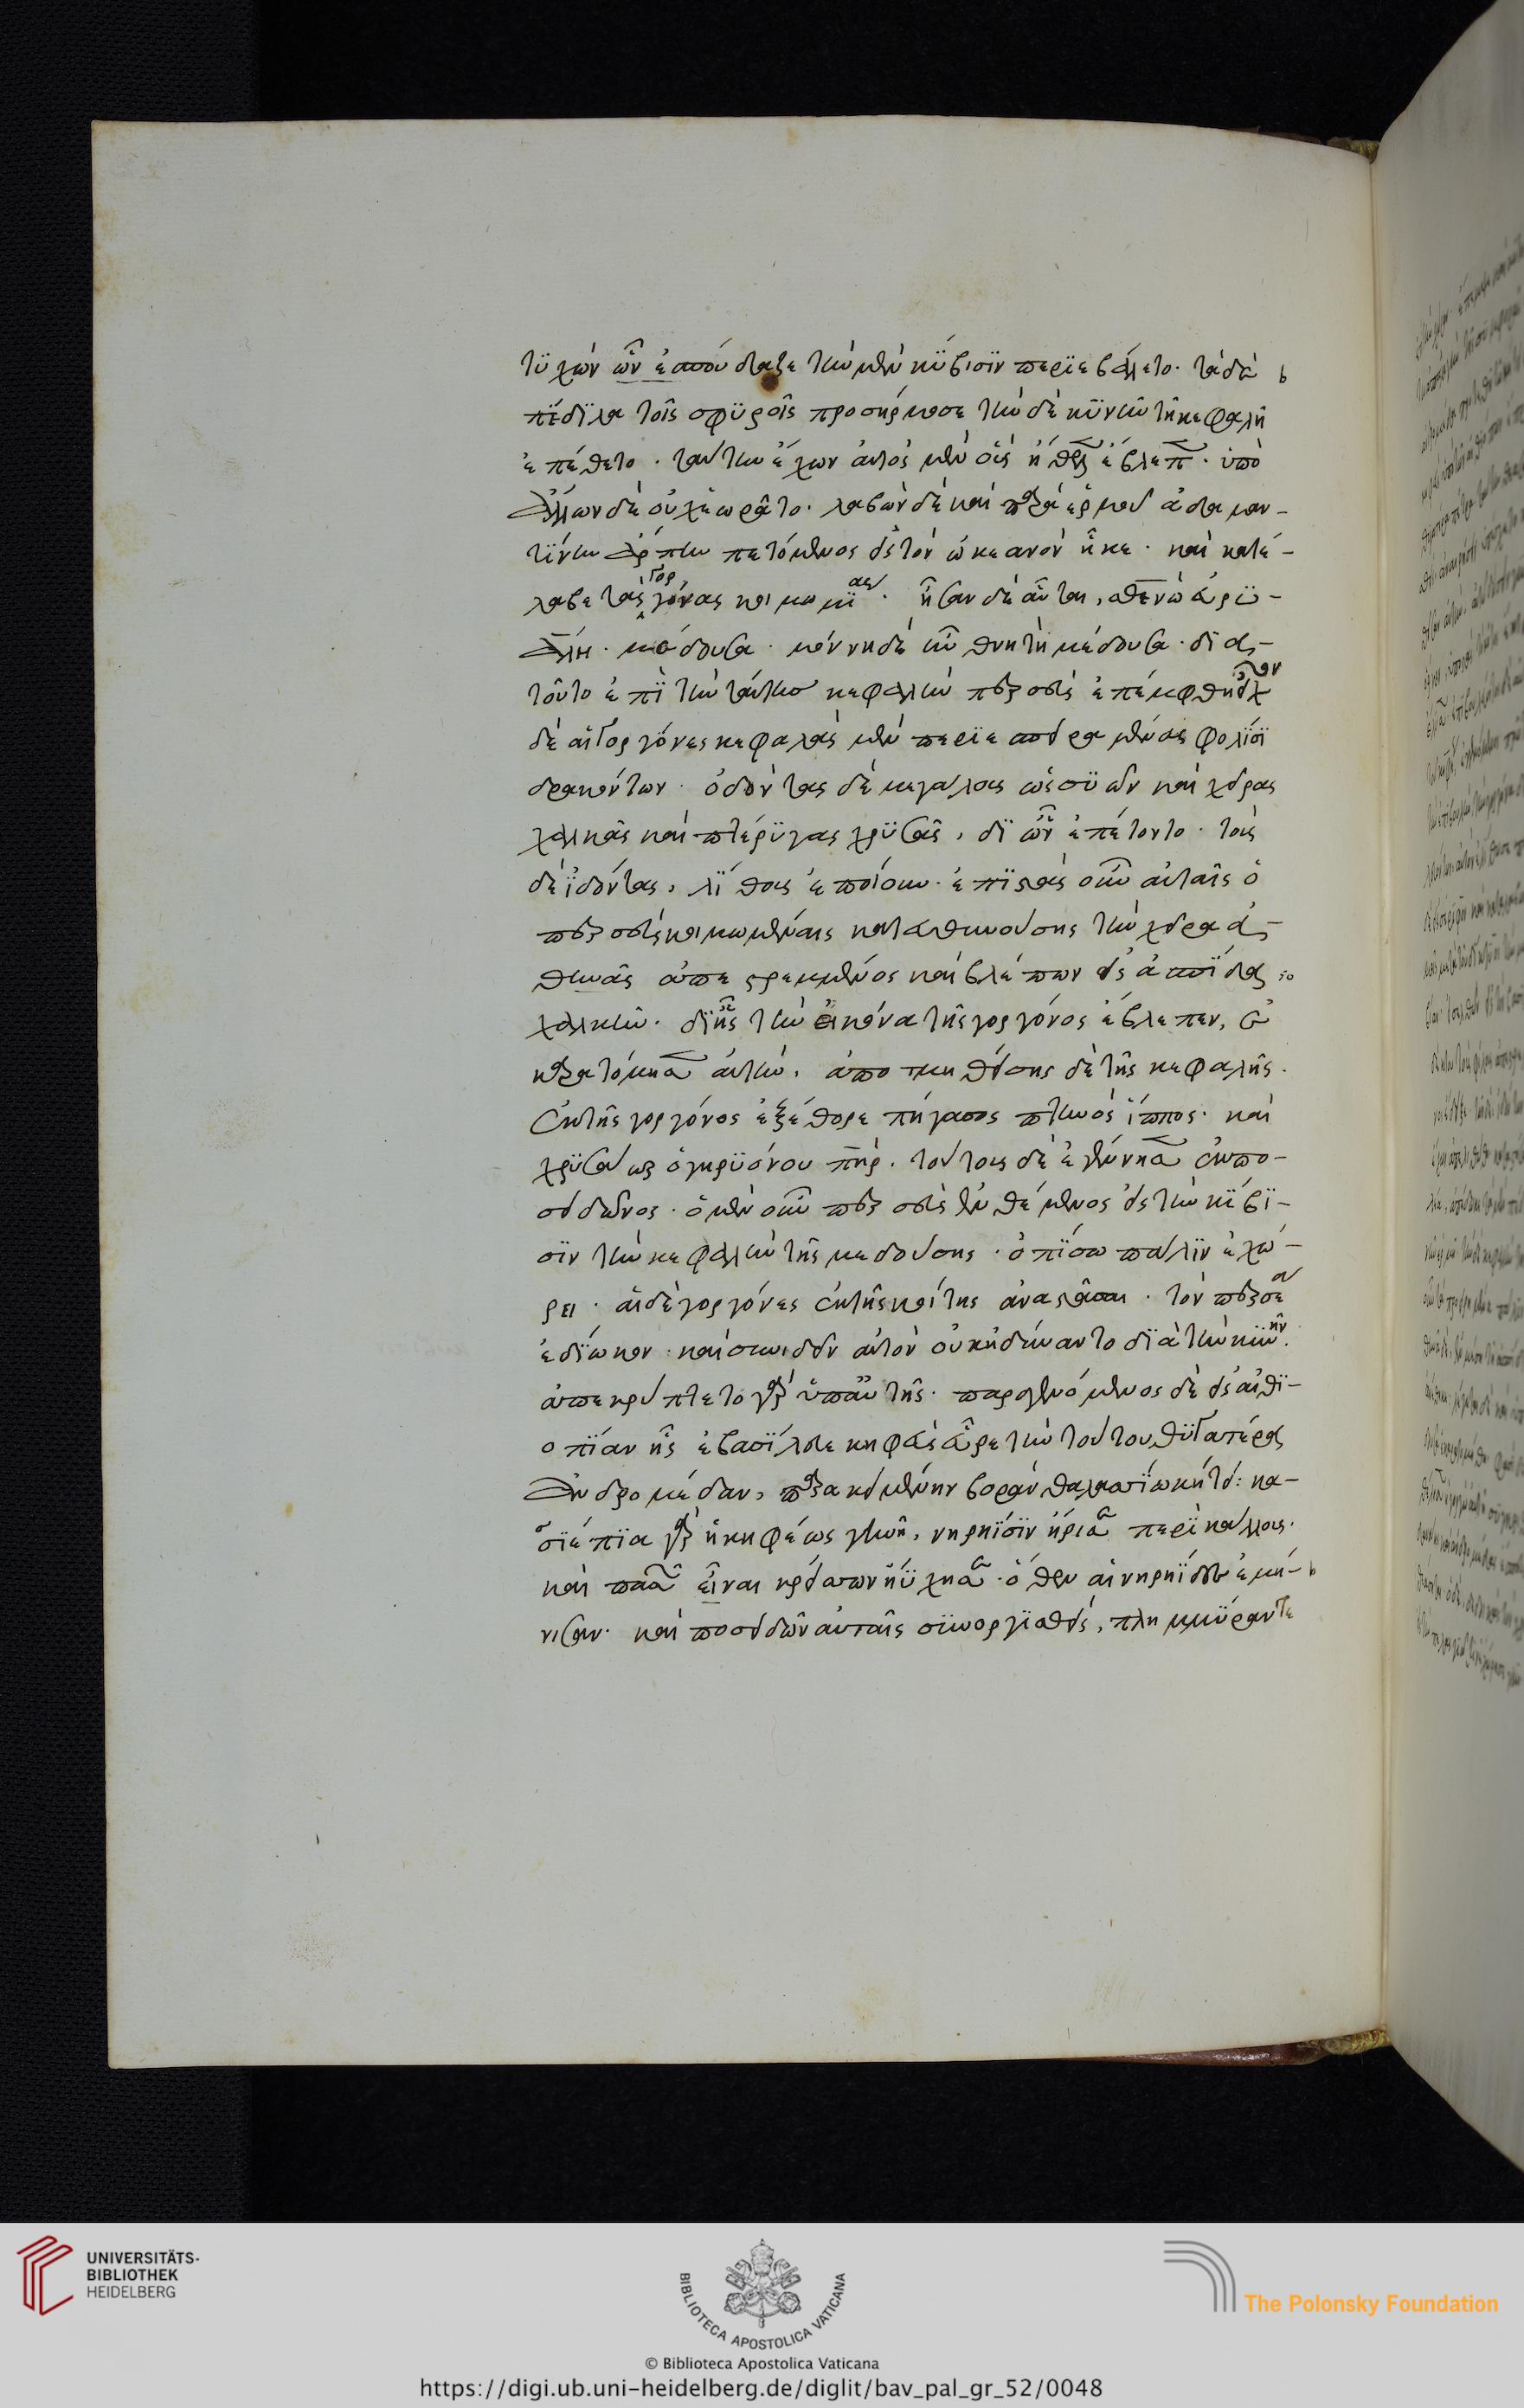 τυχὼν ὧν ἐσπούδαζε τὴν μὲν κύβισιν περιεβάλλετο. τὰ δὲ
πέδιλα τοῖς σφυροῖς προσήρμοσε τὴν δὲ κυνῆν τῇ κεφαλῇ
ἐπέθετο. ταύτην ἔχων αὐτὸς μὲν οὓς ἤθελεν ἔβλεπεν. ὑπὸ
ἄλλων δὲ οὐχ ἑωρᾶτο. λαβὼν δὲ καὶ παρὰ ἑρμοῦ ἀδαμαν-
τίνην ἅρπην πετόμενος εἰς τὸν ὠκεανὸν ἧκε. καὶ κατέ-
λαβε τὰς γοργόνας κοιμωμένας. ἦσαν δὲ αὗται, σθενὼ εὐρυ-
άλη. μέδουσα. μόνη δὲ ἦν θνητὴ μέδουσα. διὰ
τοῦτο ἐπὶ τὴν ταύτης κεφαλὴν περσεὺς ἐπέμφθη εἶχον
δὲ αἱ γοργόνες κεφαλὰς μὲν περιεσπειραμένας φολίσι
δρακόντων. ὀδόντας δὲ μεγάλους ὡς συῶν καὶ χεῖρας
χαλκᾶς καὶ πτέρυγας χρυσᾶς, δι ὧν ἐπέτοντο. τοὺς
δὲ ἰδόντας, λίθους ἐποίουν. ἐπιστὰς οὖν αὐταῖς ὁ
περσεὺς κοιμωμέναις κατευθυνούσης τὴν χεῖρα ἀ-
θηνᾶς ἀπεστραμμένος καὶ βλέπων εἰς ἀσπίδα
χαλκῆν. δι ἧς τὴν εἰκόνα τῆς γοργόνος ἔβλεπεν,
ἐκαρατόμησεν αὐτήν. ἀποτμηθείσης δὲ τῆς κεφαλῆς.
ἐκ τῆς γοργόνος ἐξέθορε πήγασος πτηνὸς ἵππος. καὶ
χρυσάωρ ὁ γηρυόνου πηρ. τούτους δὲ ἐγέννησεν ἐκ πο-
σειδῶνος. ὁ μὲν οὖν περσεὺς ἐνθέμενος εἰς τὴν κίβι-
σιν τὴν κεφαλὴν τῆς μεδούσης. ὀπίσω πάλιν ἐχώ-
ρει. αἱ δὲ γοργόνες ἐκ τῆς κοίτης ἀναστᾶσαι. τὸν περσέα
ἐδίωκον. καὶ συνιδεῖν αὐτὸν οὐκ ἠδύναντο διὰ τὴν κυνῆν.
ἀπεκρύπτετο γὰρ ὑπ αὐτῆς. παραγενόμενος δὲ εἰς αἰθι-
οπίαν ἧς ἐβασίλευε κηφεὺς εὗρε τὴν τούτου θυγατέρα
ἀνδρομέδαν, παρακειμένην βορὰν θαλασσίῳ κήτει: κα-
σιέπεια γὰρ ἡ κηφέως γυνὴ, νηρηίσιν ἤρισεν περὶ κάλλους.
καὶ πασῶν εἶναι κρείσσων ηὔχησεν. ὅθεν αἱ νηρηίδες ἐμή-
νισαν. καὶ ποσειδῶν αὐταῖς συνοργισθεὶς, πλημμύραν τε
UNIVERSITÄTS-
BIBLIOTHEK
HEIDELBERG
BIBLIOTECA APOSTOLICA VATICANA
The Polonsky Foundation
© Biblioteca Apostolica Vaticana
https://digi.ub.uni-heidelberg.de/diglit/bav_pal_gr_52/0048